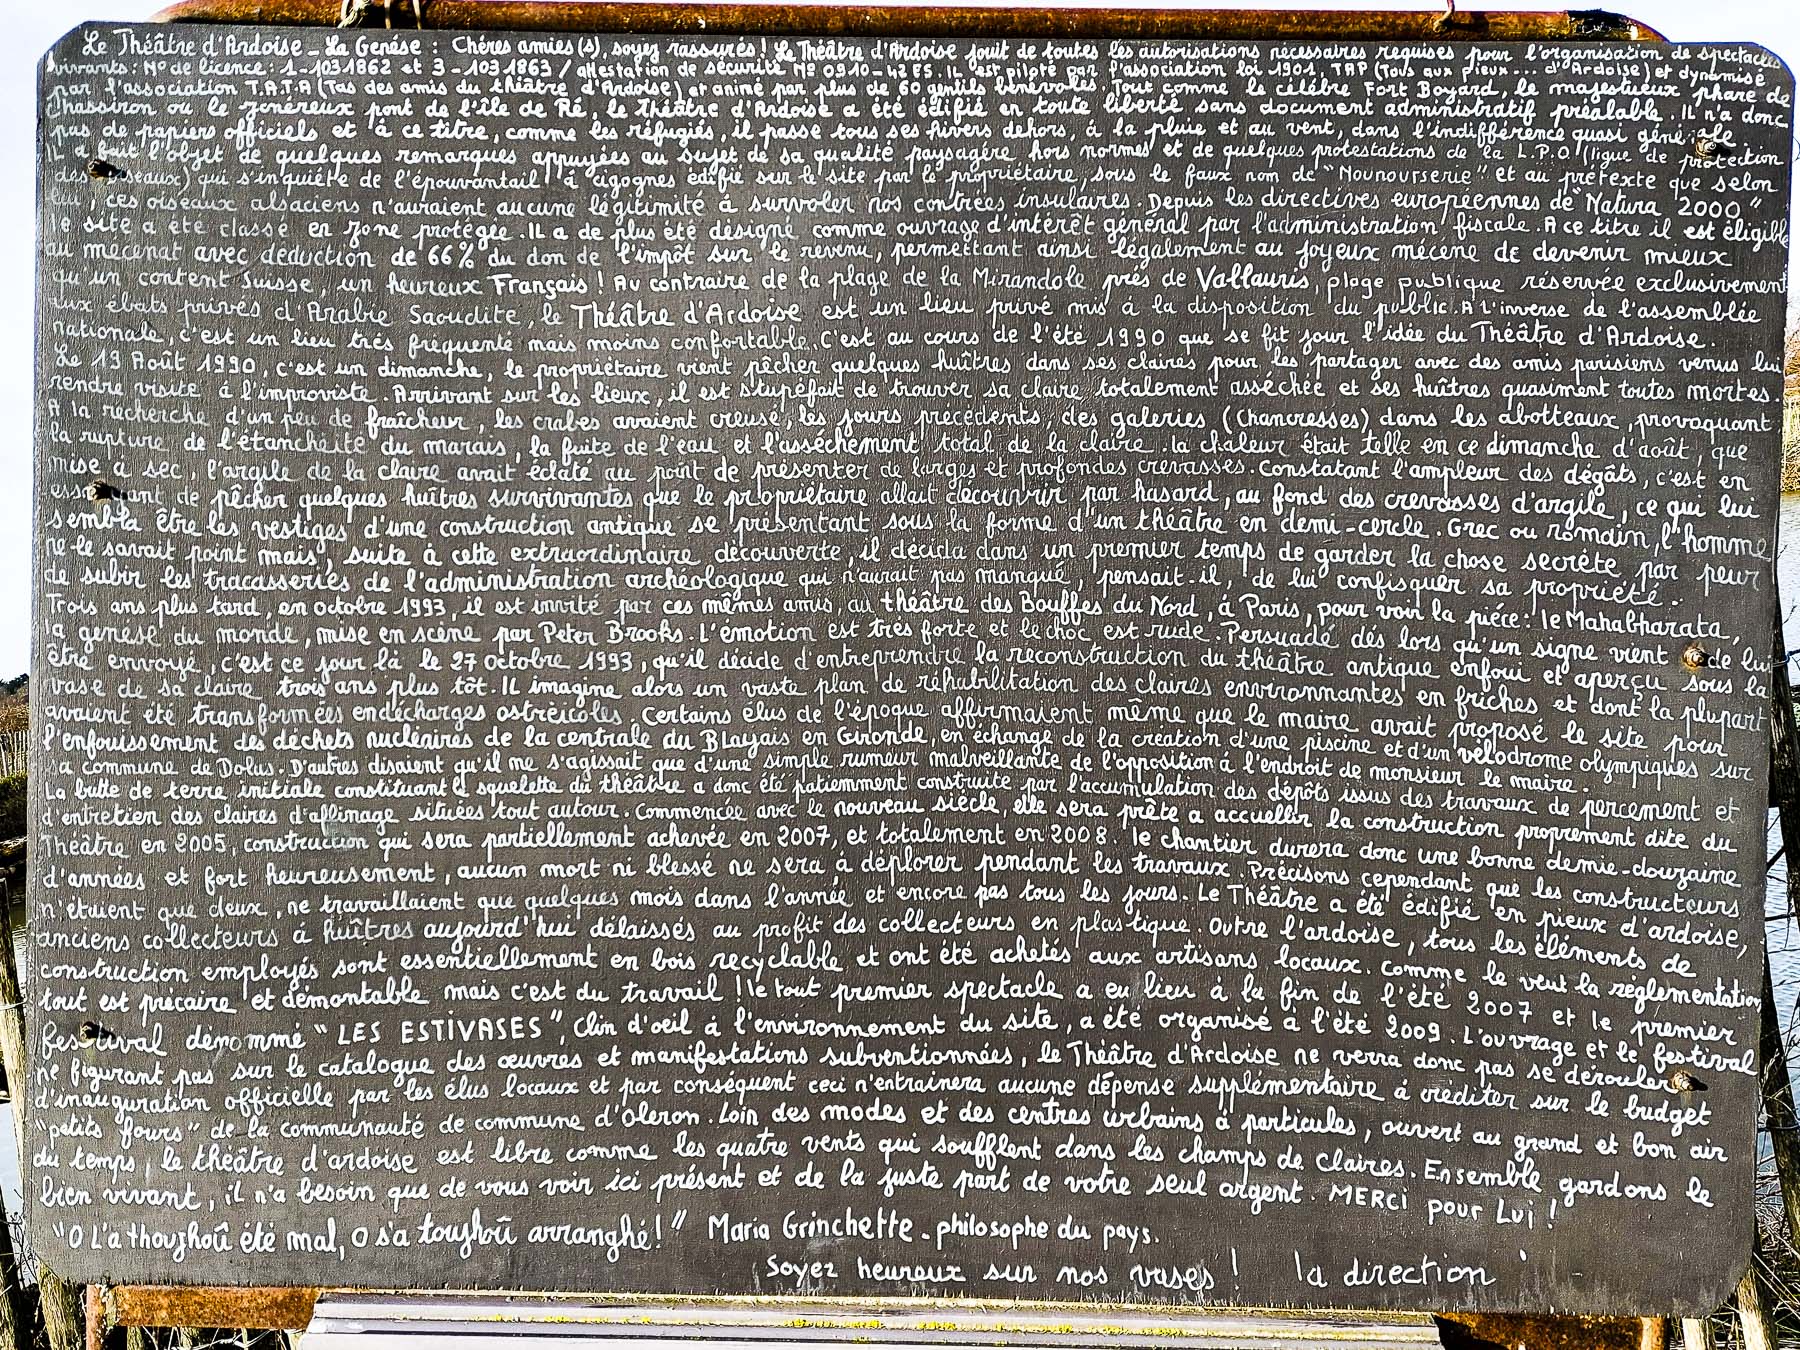 Le Théâtre d'Ardoise - La Genése : Chéres amies(s), soyez rassurés ! Le Théâtre d'Ardoise jouit de toutes les autorisations nécessaires requises pour l'organisation de spectacles
vivants : N° de licence : 1-1031862 et 3-1031863 / attestation de sécurité N° 0910-42 ES. IL est piloté par l'association loi 1901. TAP (Tous aux pieux... d'Ardoise) et dynamisé
par l'association T.A.T.A (Tas des amis du théâtre d'Ardoise) et animé par plus de 60 gentils bénévoles. Tout comme le célébre Fort Boyard, le majestueux phare de
Chassiron ou le zonéreux pont de l'île de Ré, le Théâtre d'Ardoise a été édifié en toute liberté sans document administratif préalable. Il n'a donc
pas de papiers officiels et à ce titre, comme les réfugiés, il passe tous ses hivers dehors, à la pluie et au vent, dans l'indifférence quasi générale.
IL a fait l'objet de quelques remarques appuyées au sujet de sa qualité paysagére hors normes et de quelques protestations de la L.P.O (ligue de protection
des oiseaux) qui s'inquiéte de l'épouvantail à cigognes édifié sur le site par le propriétaire, sous le faux nom de "Nounourserie" et au prétexte que selon
lui, ces oiseaux alsaciens n'auraient aucune légitimité à survoler nos contrées insulaires. Depuis les directives européennes de "Natura 2000"
le site a été classé en zone protégée. IL a de plus été désigné comme ouvrage d'intérêt général par l'administration fiscale. A ce titre il est éligible
au mécénat avec déduction de 66% du don de l'impôt sur le revenu, permettant ainsi légalement au joyeux mécène de devenir mieux
qu'un content Suisse, un heureux Français ! Au contraire de la plage de la Mirandole prés de Vallauris, plage publique réservée exclusivement
aux ébats privés d'Arabie Saoudite, le Théâtre d'Ardoise est un lieu privé mis à la disposition du public. A l'inverse de l'assemblée
nationale, c'est un lieu trés fréquenté mais moins confortable. C'est au cours de l'été 1990 que se fit jour l'idée du Théâtre d'Ardoise.
Le 19 Août 1990, c'est un dimanche, le propriétaire vient pêcher quelques huîtres dans ses claires pour les partager avec des amis parisiens venus lui
rendre visite à l'improviste. Arrivant sur les lieux, il est stupéfait de trouver sa claire totalement asséchée et ses huîtres quasiment toutes mortes.
A la recherche d'un peu de fraîcheur, les crabes avaient creusé, les jours précédents, des galeries (Chancresses) dans les abotteaux, provoquant
la rupture de l'étanchéité du marais, la fuite de l'eau et l'asséchement total de la claire. la chaleur était telle en ce dimanche d'août, que
mise à sec, l'argile de la claire avait éclaté au point de présenter de larges et profondes crevasses. Constatant l'ampleur des dégâts, c'est en
essayant de pêcher quelques huîtres survivantes que le propriétaire allait découvrir par hasard, au fond des crevasses d'argile, ce qui lui
sembla être les vestiges d'une construction antique se présentant sous la forme d'un théâtre en demi-cercle. Grec ou romain, l'homme
ne le savait point mais, suite à cette extraordinaire découverte, il décida dans un premier temps de garder la chose secrète par peur
de subir les tracasseries de l'administration archéologique qui n'aurait pas manqué, pensait-il, de lui confisquer sa propriété.
Trois ans plus tard, en octobre 1993, il est invité par ces mêmes amis, au théâtre des Bouffes du Nord, à Paris, pour voir la piéce : le Mahabharata,
la genése du monde, mise en scène par Peter Brooks. L'émotion est trés forte et le choc est rude. Persuadé dés lors qu'un signe vient de lui
être envoyé, c'est ce jour là le 27 octobre 1993, qu'il décide d'entreprendre la reconstruction du théâtre antique enfoui et aperçu sous la
vase de sa claire trois ans plus tôt. IL imagine alors un vaste plan de réhabilitation des claires environnantes en friches et dont la plupart
avaient été transformées en décharges ostréicoles. Certains élus de l'époque affirmaient même que le maire avait proposé le site pour
l'enfouissement des déchets nucléaires de la centrale du BLayais en Gironde, en échange de la création d'une piscine et d'un vélodrome olympiques sur
sa commune de Dolus. D'autres disaient qu'il ne s'agissait que d'une simple rumeur malveillante de l'opposition à l'endroit de monsieur le maire.
La butte de terre initiale constituant le squelette du théâtre a donc été patiemment construite par l'accumulation des dépôts issus des travaux de percement et
d'entretien des claires d'affinage situées tout autour. Commencée avec le nouveau siècle, elle sera prête à accueillir la construction proprement dite du
Théâtre en 2005, construction qui sera partiellement achevée en 2007, et totalement en 2008. le chantier durera donc une bonne demie-douzaine
d'années et fort heureusement, aucun mort ni blessé ne sera à déplorer pendant les travaux. Précisons cependant que les constructeurs
n'étaient que deux, ne travaillaient que quelques mois dans l'année et encore pas tous les jours. Le Théâtre a été édifié en pieux d'ardoise,
anciens collecteurs à huîtres aujourd'hui délaissés au profit des collecteurs en plastique. Outre l'ardoise, tous les éléments de
construction employés sont essentiellement en bois recyclable et ont été achetés aux artisans locaux. Comme le veut la réglementation
tout est précaire et démontable mais c'est du travail ! le tout premier spectacle a eu lieu à la fin de l'été 2007 et le premier
festival dénommé "LES ESTIVASES", Clin d'oeil à l'environnement du site, a été organisé à l'été 2009. L'ouvrage et le festival
ne figurant pas sur le catalogue des œuvres et manifestations subventionnées, le Théâtre d'Ardoise ne verra donc pas se dérouler
d'inauguration officielle par les élus locaux et par conséquent ceci n'entrainera aucune dépense supplémentaire à créditer sur le budget
"petits fours" de la communauté de commune d'Oleron. Loin des modes et des centres urbains à particules, ouvert au grand et bon air
du temps, le théâtre d'ardoise est libre comme les quatre vents qui soufflent dans les champs de claires. Ensemble gardons le
bien vivant, il n'a besoin que de vous voir ici présent et de la juste part de votre seul argent. MERCI pour Lui !
"O L'a thouzhoû été mal, O s'a toujhoû arranghé !" Maria Grinchette - philosophe du pays.
Soyez heureux sur nos vases ! la direction